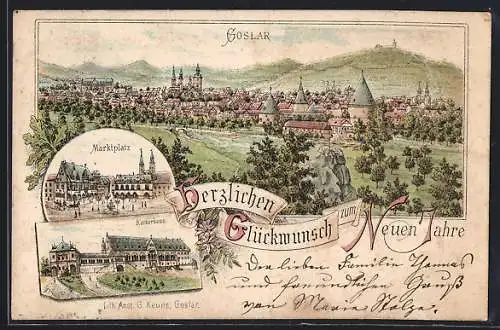 GOSLAR
Marktplatz
Kaiserhaus
Lith. Anst. G. Keune, Goslar.
Herzlichen
Glückwunsch
zum
Neuen Jahre
Der lieben Familie Thomas
und freundlichen Gruß
von Marie Stolze.